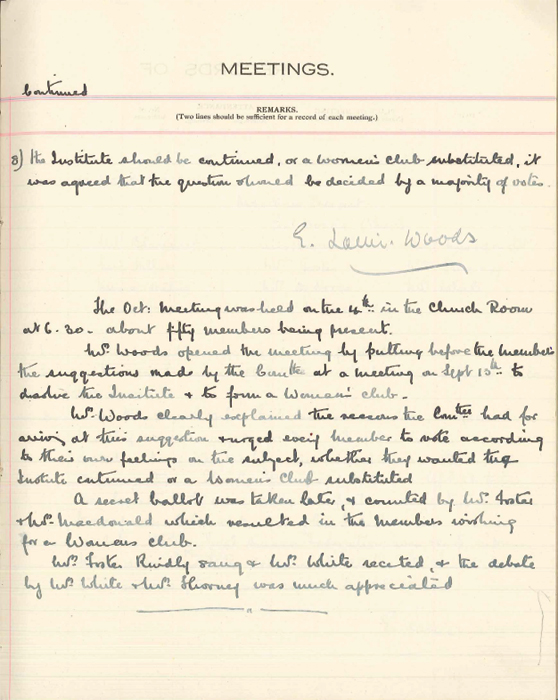 MEETINGS.
Continued
REMARKS.
(Two lines should be sufficient for a record of each meeting.)
8) the Institute should be continued, or a Women's Club substituted, it
was agreed that the question should be decided by a majority of votes.
E. Woods
The Oct: Meeting was held on the 4th in the Church Room
at 6.30 - about fifty members being present.
Mrs Woods opened the meeting by putting before the Members
the suggestions made by the Comtte at a meeting on Sept 13th to
disolve the Institute & to form a Woman's club.
Mrs Woods clearly explained the reasons the Comttee had for
ariving at this suggestion & urged every member to vote according
to their own feelings on the subject, whether they wanted the
Institute continued or a Women's Club substituted
A secret ballot was taken later, & counted by Mrs Foster
& Mrs Macdonald which resulted in the Members wishing
for a Womans club.
Mrs Foster Kindly sang & Mrs White recited, & the debate
by Mrs White & Mrs Thorney was much appreciated